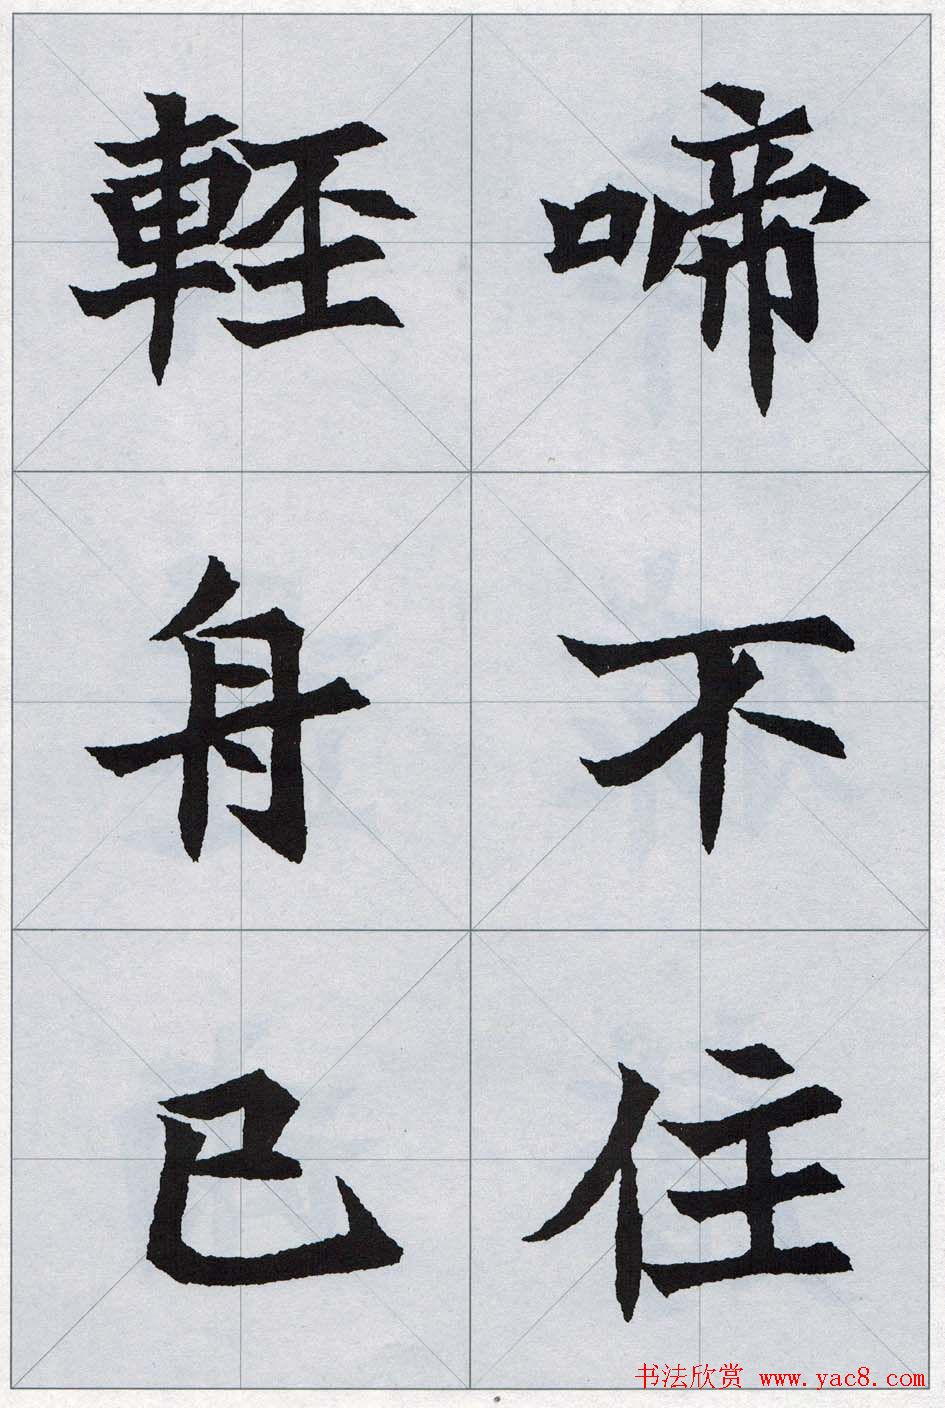 啼不住
輕舟已
书法欣赏 www.yac8.com